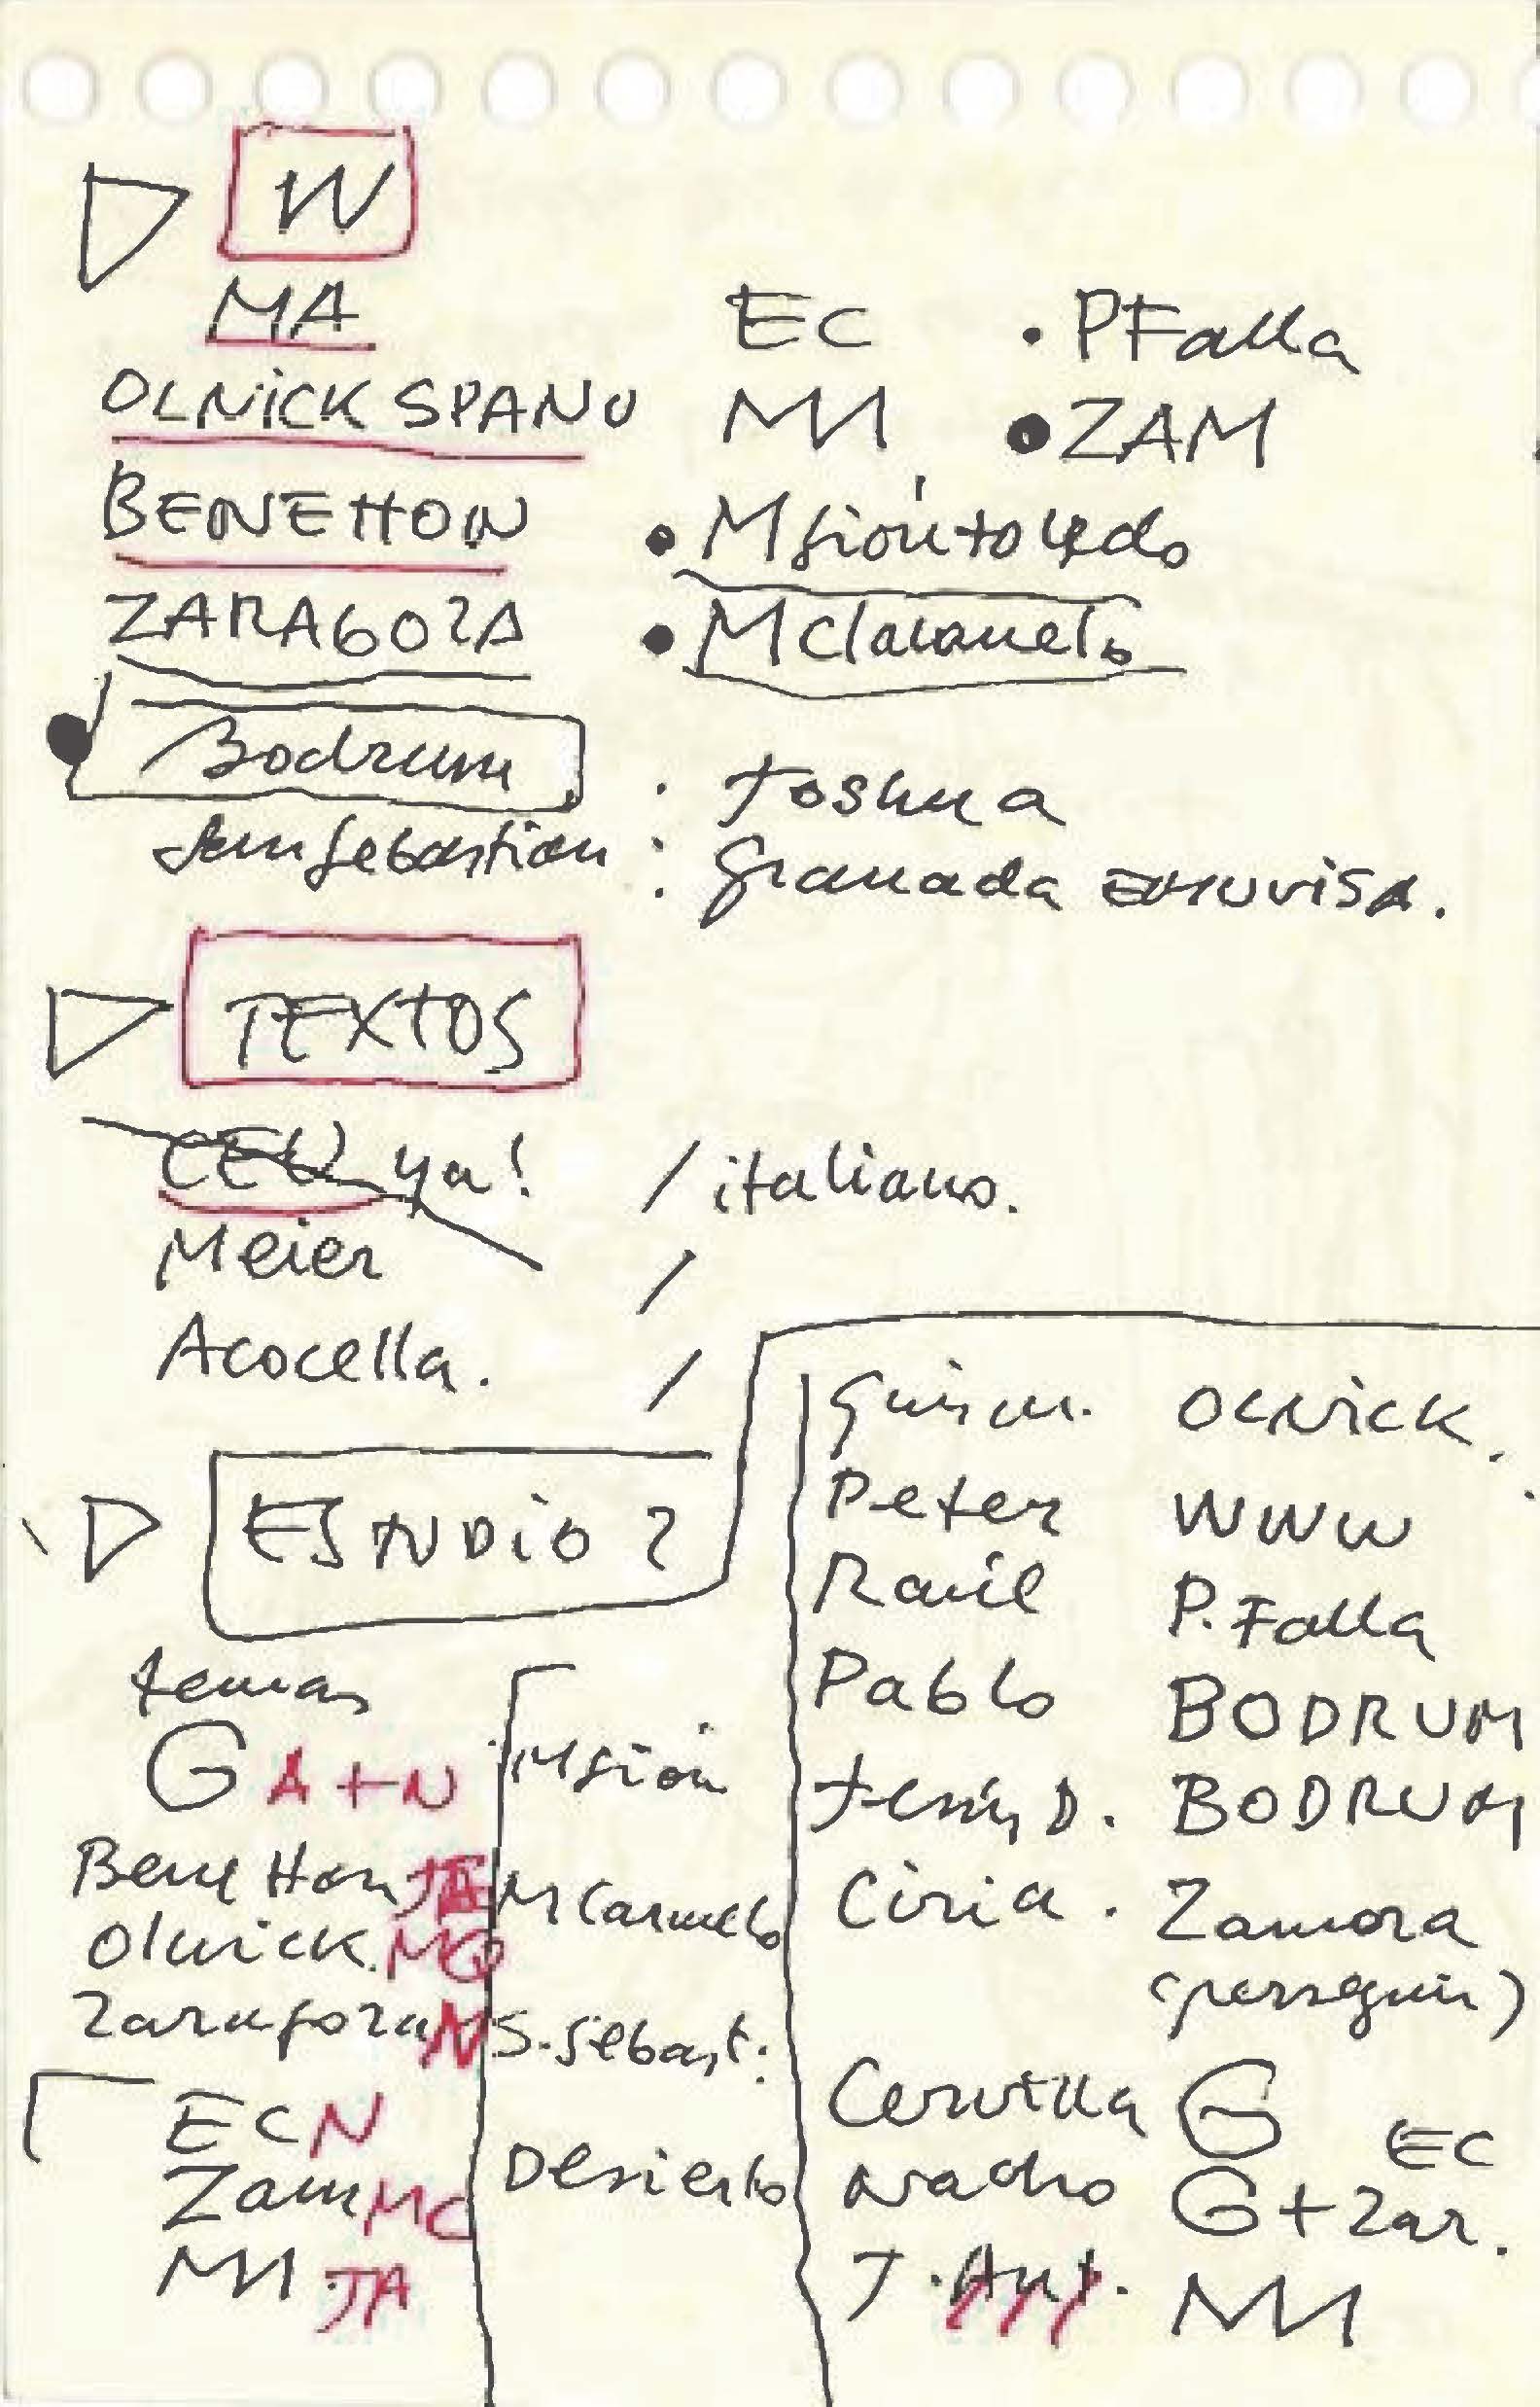 W
MA
OLNICK SPANU
BENETTON
ZARAGOZA
Bodrum
San Sebastian
EC
MA
• PFalla
• ZAM
• M Sión toledo
•
: Joshua
: Granada EMUVISA.
TEXTOS
CEU ya! / italiano.
Meier /
Acocella. /
ESTUDIO 2
temas
G A+N
Benetton JA
Olnick. MQ
Zaragoza N
EC N
Zam MC
MA. JA
M Sión
M Carmelo
S. Sebast:
Desierto
Guim. OLNICK.
Peter WWW
Raúl P. Falla
Pablo BODRUM
Jesús D. BODRUM
Ciria. Zamora
(perseguir)
Cervilla G EC
Nacho G + Zar.
J. Ant. MA